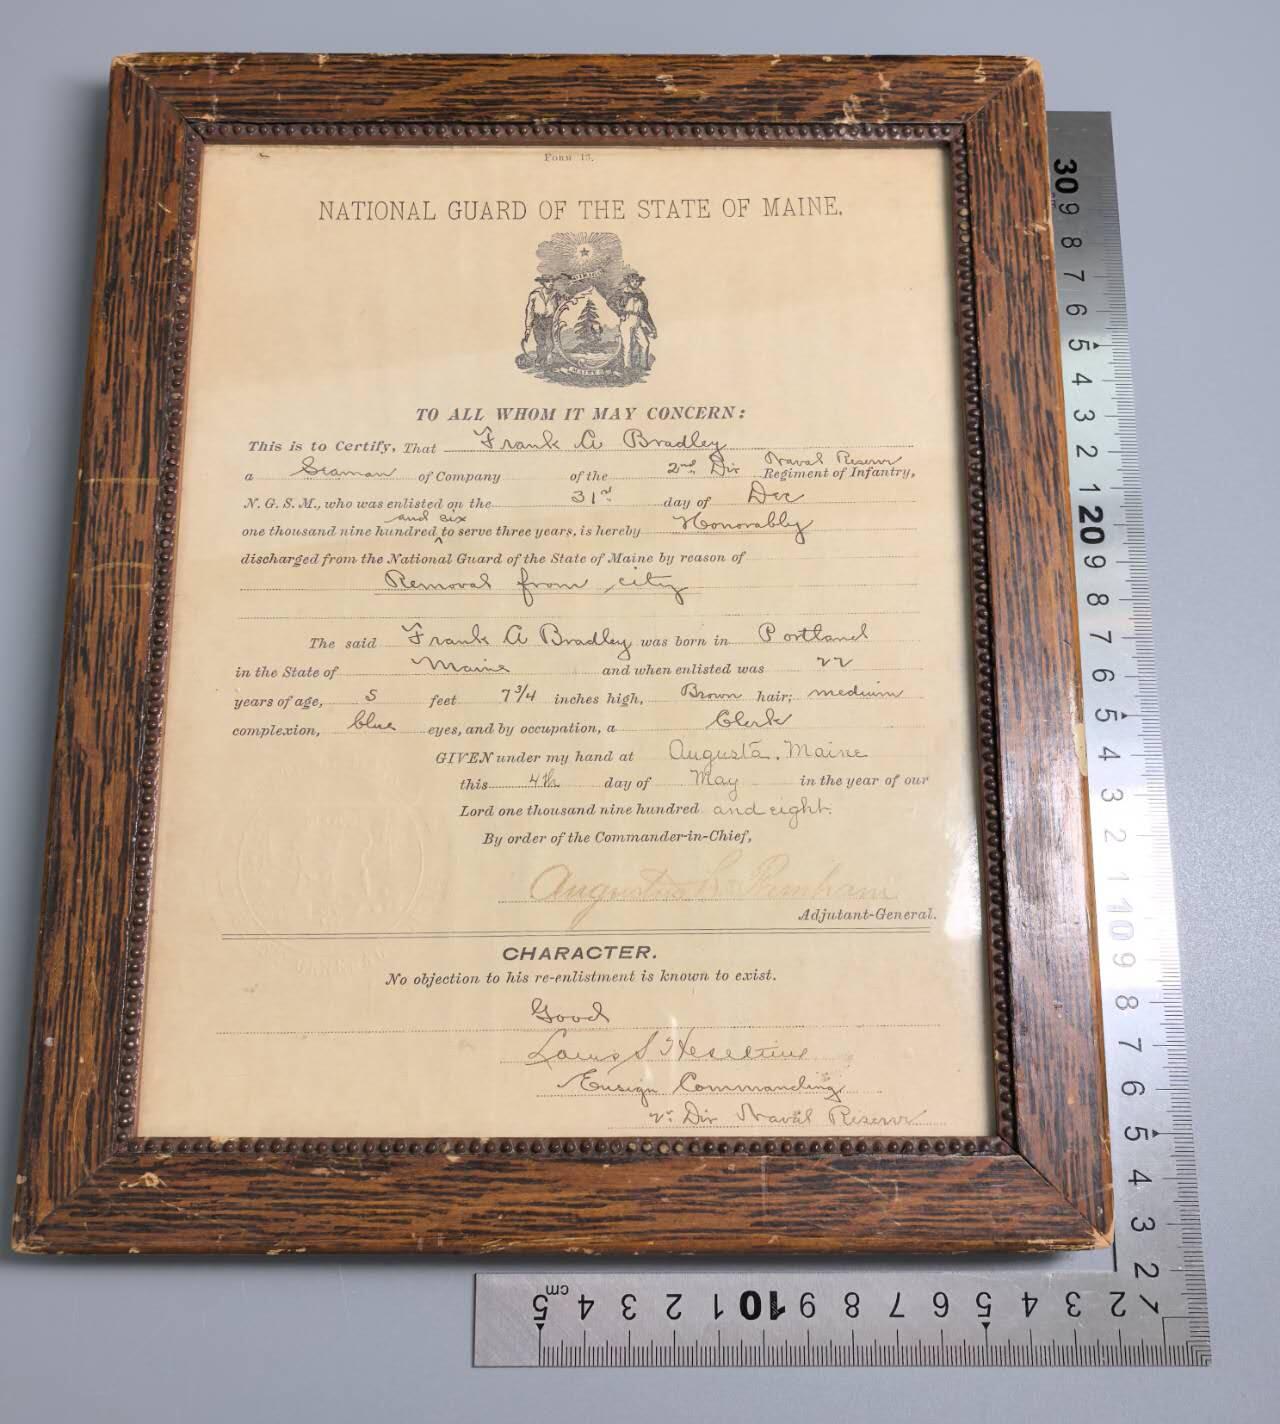 Form 15.
NATIONAL GUARD OF THE STATE OF MAINE.
DIRIGO
MAINE
TO ALL WHOM IT MAY CONCERN:
This is to Certify, That Frank A Bradley
a Seaman of Company of the 2nd Div Naval Reserve Regiment of Infantry,
N. G. S. M., who was enlisted on the 31st day of Dec
one thousand nine hundred and six to serve three years, is hereby Honorably
discharged from the National Guard of the State of Maine by reason of
Removal from city
The said Frank A Bradley was born in Portland
in the State of Maine and when enlisted was 22
years of age, 5 feet 7 3/4 inches high, Brown hair; medium
complexion, blue eyes, and by occupation, a Clerk
GIVEN under my hand at Augusta, Maine
this 4th day of May in the year of our
Lord one thousand nine hundred and eight.
By order of the Commander-in-Chief,
Augustus
Adjutant-General.
CHARACTER.
No objection to his re-enlistment is known to exist.
Good
Louis S Heseltine
Ensign Commanding
2" Div Naval Reserve
30 9 8 7 6 5 4 3 2 1 20 9 8 7 6 5 4 3 2 1 10 9 8 7 6 5 4 3 2
5 cm 4 3 2 1 10 9 8 7 6 5 4 3 2 1